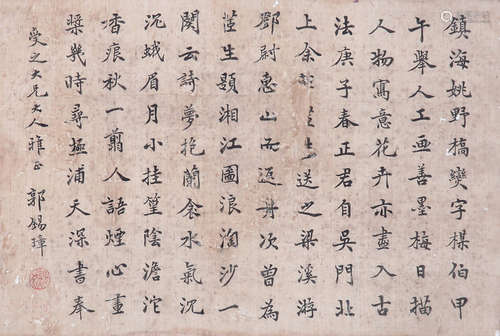 鎮海姚野橋燮字楳伯甲
午舉人工画善墨梅日描
人物寫意花卉亦盡入古
法庚子春正君自吳門北
上余送之梁溪游
鄧尉惠山而返舟次曾為
生題湘江圖浪淘沙一
闋云詩夢抱蘭衾水氣沉
沉蛾眉月小挂篁陰澹沱
香痕秋一翦人語煙心畫
槳幾時尋極浦天深書奉
受之大兄大人雅正 郭錫璋